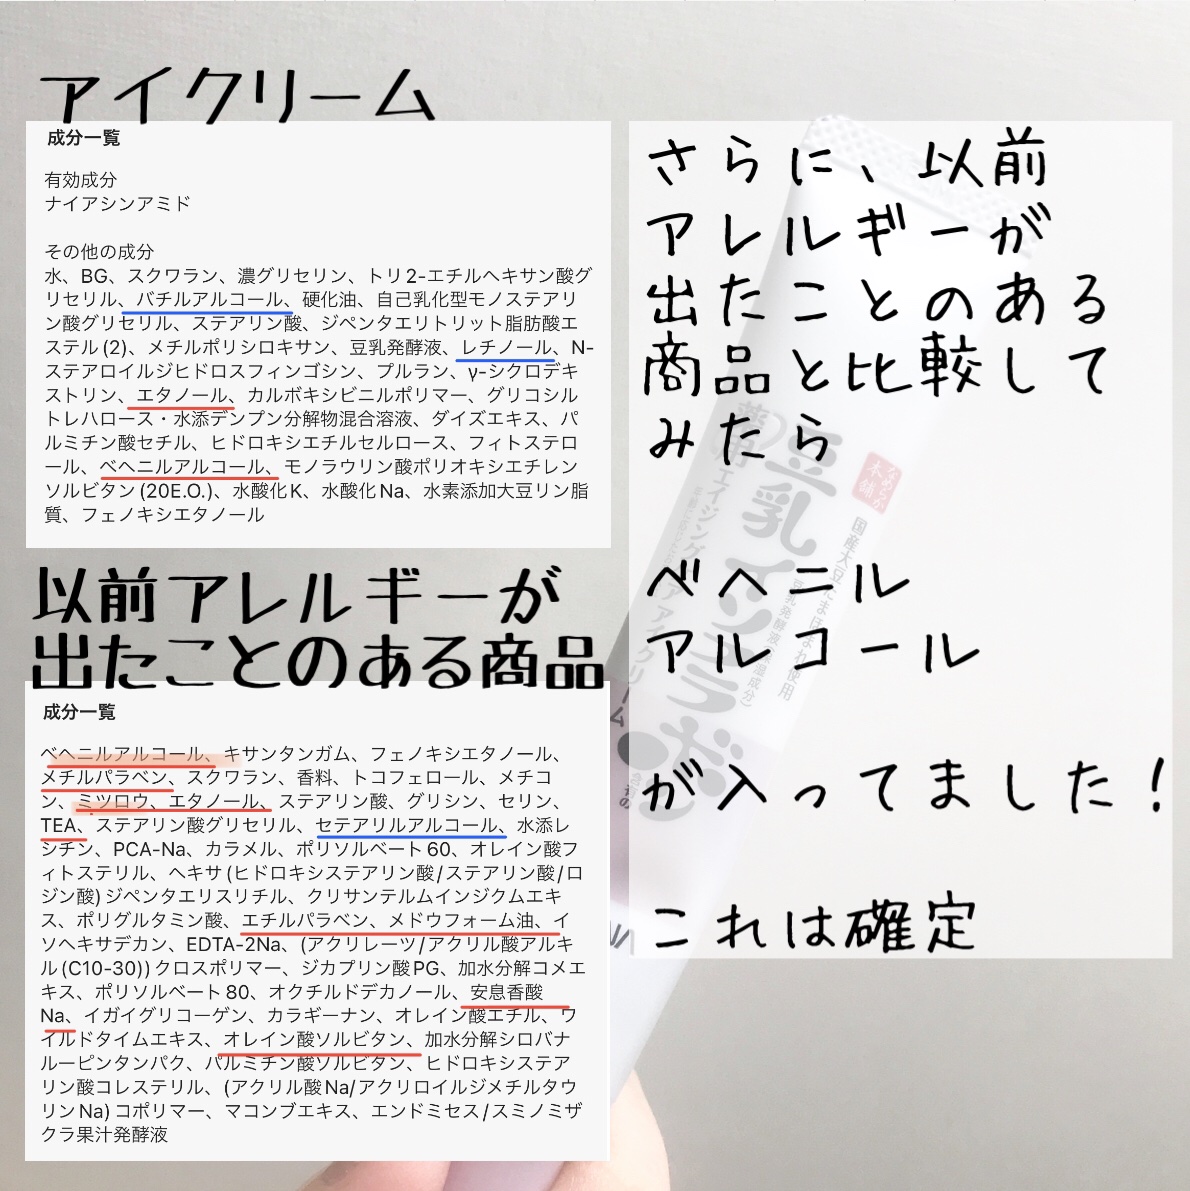 アイクリーム
成分一覧
有効成分
ナイアシンアミド
その他の成分
水、BG、スクワラン、濃グリセリン、トリ2-エチルヘキサン酸グ
リセリル、バチルアルコール、硬化油、自己乳化型モノステアリ
ン酸グリセリル、ステアリン酸、ジペンタエリトリット脂肪酸エ
ステル(2)、メチルポリシロキサン、豆乳発酵液、レチノール、N-
ステアロイルジヒドロスフィンゴシン、プルラン、γ-シクロデキ
ストリン、エタノール、カルボキシビニルポリマー、グリコシル
トレハロース・水添デンプン分解物混合溶液、ダイズエキス、パ
ルミチン酸セチル、ヒドロキシエチルセルロース、フィトステロ
ール、ベヘニルアルコール、モノラウリン酸ポリオキシエチレン
ソルビタン(20E.O.)、水酸化K、水酸化Na、水素添加大豆リン脂
質、フェノキシエタノール
以前アレルギーが
出たことのある商品
成分一覧
ベヘニルアルコール、キサンタンガム、フェノキシエタノール、
メチルパラベン、スクワラン、香料、トコフェロール、メチコ
ン、ミツロウ、エタノール、ステアリン酸、グリシン、セリン、
TEA、ステアリン酸グリセリル、セテアリルアルコール、水添レ
シチン、PCA-Na、カラメル、ポリソルベート60、オレイン酸フ
ィトステリル、ヘキサ(ヒドロキシステアリン酸/ステアリン酸/ロ
ジン酸)ジペンタエリスリチル、クリサンテルムインジクムエキ
ス、ポリグルタミン酸、エチルパラベン、メドウフォーム油、イ
ソヘキサデカン、EDTA-2Na、(アクリレーツ/アクリル酸アルキ
ル(C10-30))クロスポリマー、ジカプリン酸PG、加水分解コメエ
キス、ポリソルベート80、オクチルドデカノール、安息香酸
Na、イガイグリコーゲン、カラギーナン、オレイン酸エチル、ワ
イルドタイムエキス、オレイン酸ソルビタン、加水分解シロバナ
ルーピンタンパク、パルミチン酸ソルビタン、ヒドロキシステア
リン酸コレステリル、(アクリル酸Na/アクリロイルジメチルタウ
リンNa)コポリマー、マコンブエキス、エンドミセス/スミノミザ
クラ果汁発酵液
さらに、以前
アレルギーが
出たことのある
商品と比較して
みたら
ベヘニル
アルコール
が入ってました！
これは確定
なめらか
本舗
国産大豆
豆乳イソフラボン
アイクリーム